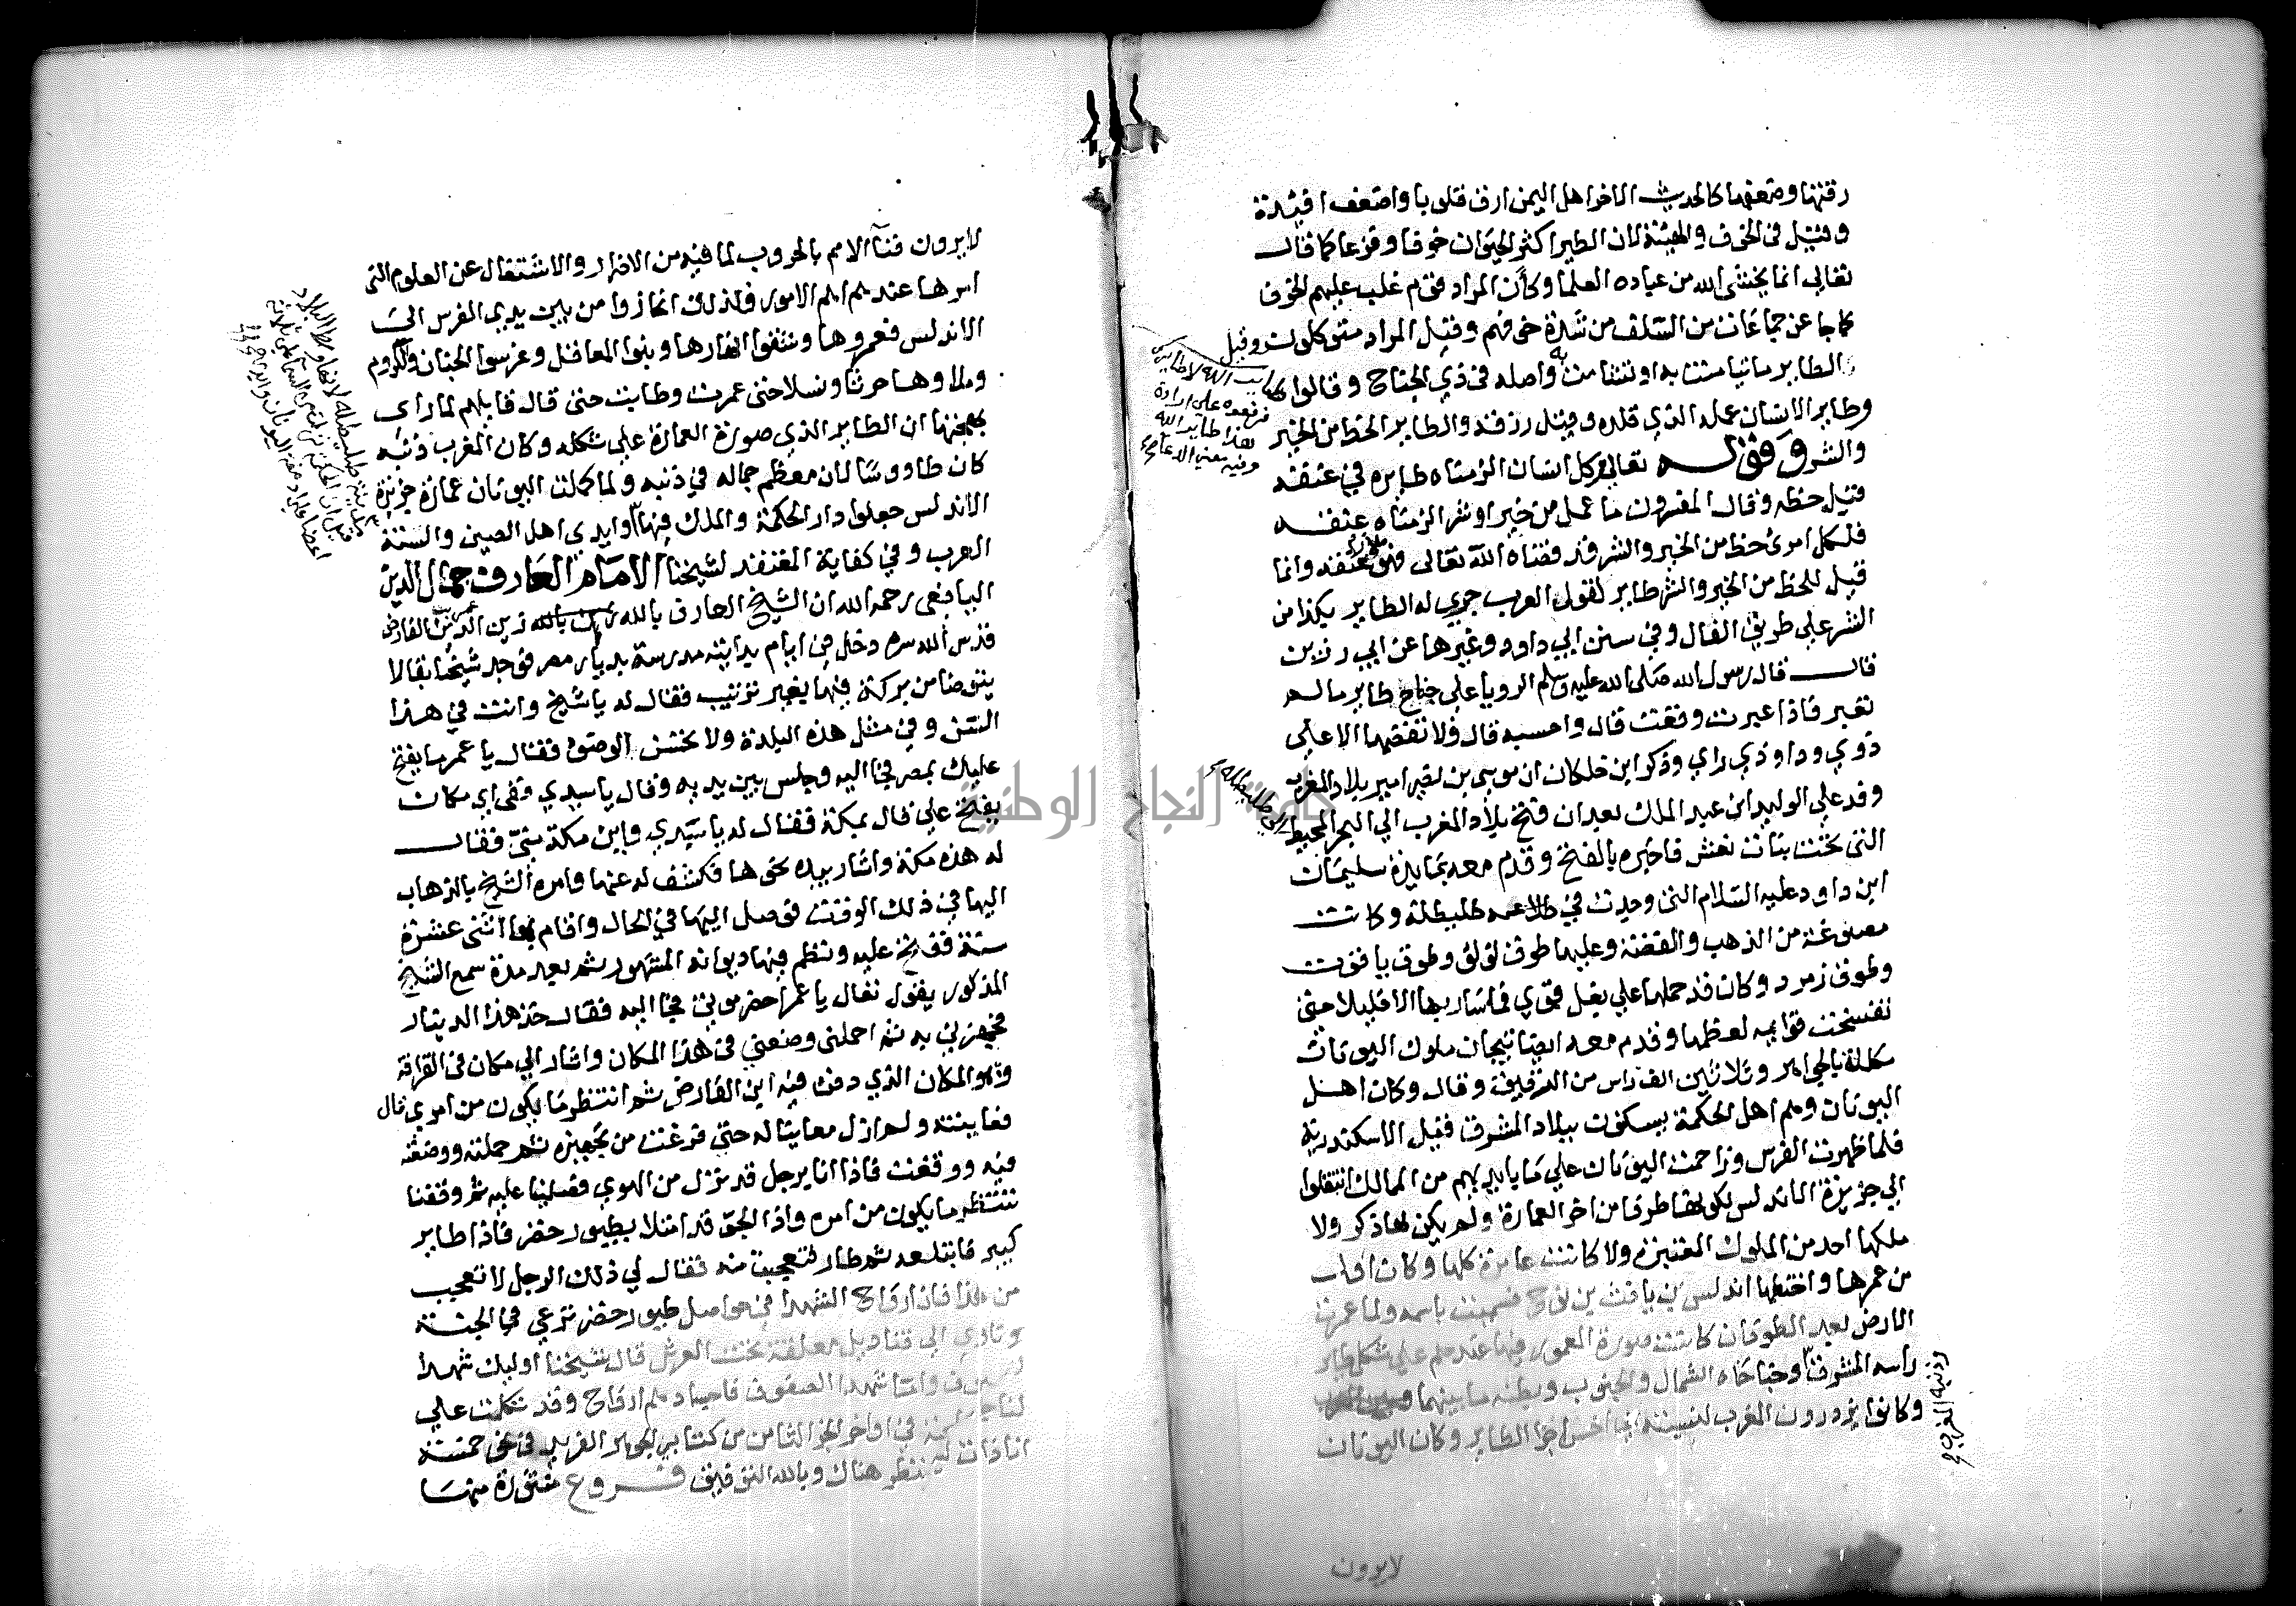 رقتها وضعفها كالحديث الاخر اهل اليمن ارق قلوبا واضعف افئدة
وقيل في الخوف والهيبة لان الطير اكثر الحيوان خوفا وفزعا كما قال
تعالي انما يخشى الله من عباده العلما وكأن المراد قوم غلب عليهم الخوف
كما جا عن جماعات من السلف من شدة خوفهم وقيل المراد متوكلون وقيل
الطاير ما تيامنت به او تشامت به واصله في ذي الجناح وقالوا
طاير الله لا طايرك
فرفعوه علي ارادة
هذا طاير الله
وفيه معني الدعاء
وطاير الانسان عمله الذي قلده وقيل رزقه والطاير الحظ من الخير
والشر وقوله تعالي وكل انسان الزمناه طايره في عنقه
قيل حظه وقال المفسرون ما عمل من خير او شر الزمناه عنقه
فلكل امرئ حظ من الخير والشر قد قضاه الله تعالى فهو عنقه وانما
قيل للحظ من الخير والشر طاير لقول العرب جري له الطاير بكذا من
الشر علي طريق الفال وفي سنن ابي داود وغيرها عن ابي رزين
قال قال رسول الله صلى الله عليه وسلم الرويا علي جناح طاير ما لم
تعبر فاذا عبرت وقعت قال واحسبه قال ولا تقصها الا علي
ذوي ود او ذي راي وذكر ابن خلكان ان موسى بن نصير امير بلاد المغرب
وفد علي الوليد ابن عبد الملك بعد ان فتح بلاد المغرب الي البحر المحيط
الي طليطلة
التي تحت بنات نعش فاخبره بالفتح وقدم معه بمايدة سليمان
ابن داود عليه السلام التي وجدت في طليطلة وكانت
مصوغة من الذهب والفضة وعليها طوق لؤلؤ وطوق ياقوت
وطوق زمرد وكان قد حملها علي بغل قوي فما سار بها الا قليلا حتى
تفسخت قوايمه لعظمها وقدم معه ايضا تيجان ملوك اليونان
مكللة بالجواهر وثلاثين الف راس من الرقيق وقال وكان اهل
اليونان وهم اهل الحكمة يسكنون ببلاد المشرق قبل الاسكندرية
فلما ظهرت الفرس وزاحمت اليونان علي ما بايديهم من الممالك انتقلوا
الي جزيرة الاندلس لكونها طرفا من اخر العمارة ولم يكن لها ذكر ولا
ملكها احد من الملوك المعتبرة ولا كانت عامرة كلها وكان اول
من عمرها واختطها اندلس بن يافث بن نوح فسميت باسمه ولما عمرت
الارض بعد الطوفان كانت صورة المعمور فيها عندهم علي شكل طاير
راسه المشرق وجناحاه الشمال والجنوب وبطنه ما بينهما
وذنبه المغرب
وكانوا يزدرون المغرب لنسبته الي اخس اجزا الطاير وكان اليونان
لايرون
لايرون فنآ الامم بالحروب لما فيه من الاضرار والاشتغال عن العلوم التي
امرها عندهم اهم الامور فلذلك انحازوا من بين يدي الفرس الى
الاندلس فعمروها وشققوا انهارها وبنوا المعاقل وغرسوا الجنان والكروم
وملاوها حرثا ونسلا حتى عمرت وطابت حتى قال قايلهم لما راى
بهجتها ان الطاير الذي صورة العمارة علي شكله وكان المغرب ذنبه
كان طاووسا لان معظم جماله في ذنبه ولما كملت اليونان عمارة جزيرة
الاندلس جعلوا دار الحكمة والملك فيها وايدي اهل الصين والسنة
مدينة طليطلة لانها وسط البلاد
قيل ان الحكمة نزلت من السما علي ثلاثة
اعضا علي ادمغة اليونان وايدي
العرب وفي كفاية المعتقد لشيخنا الامام العارف جمال الدين
اليافعي رحمه الله ان الشيخ العارف بالله زين الدين عمر بن الفارض
قدس الله سره دخل في ايام بدايته مدرسة بديار مصر فوجد شيخا بقالا
يتوضا من بركة فيها بغير ترتيب فقال له يا شيخ وانت في هذا
السن وفي مثل هذه البلدة ولا تحسن الوضوء فقال يا عمر ما يفتح
عليك بمصر فجا اليه وجلس بين يديه وقال يا سيدي وفي اي مكان
يفتح علي قال بمكة فقال له يا سيدي واين مكة مني فقال
له هذه مكة واشار بيده نحوها فكشف له عنها وامره الشيخ بالذهاب
اليها في ذلك الوقت فوصل اليها في الحال واقام بها اثني عشرة
سنة ففتح عليه ونظم فيها ديوانه المشهور ثم بعد مدة سمع الشيخ
المذكور يقول تعال يا عمر احضر موتي فجا اليه فقال خذ هذا الدينار
فجهزني به ثم احملني وضعني في هذا المكان واشار الي مكان في القرافة
وهو المكان الذي دفن فيه ابن الفارض ثم انتظر ما يكون من امري قال
فعاينته ولم ازل معاينا له حتى فرغت من تجهيزه ثم حملته ووضعته
فيه ووقفت فاذا انا برجل قد نزل من الهوى فصلينا عليه ثم وقفنا
ننتظر ما يكون من امره واذا الجو قد امتلا بطيور خضر فاذا طاير
كبير فابتلعه ثم طار فتعجبت منه فقال لي ذلك الرجل لا تعجب
من هذا فان ارواح الشهدا في حواصل طيور خضر ترعي في الجنة
وتاوي الي قناديل معلقة تحت العرش قال شيخنا اوليك شهدا
السيوف واما شهدا الصفوف فاجسادهم ارواح وقد تكلمت علي
في اواخر الجز الثامن من كتابي الجوهر الفريد في نحو خمسة
هناك وبالله التوفيق فروع منثورة منها
جامعة النجاح الوطنية